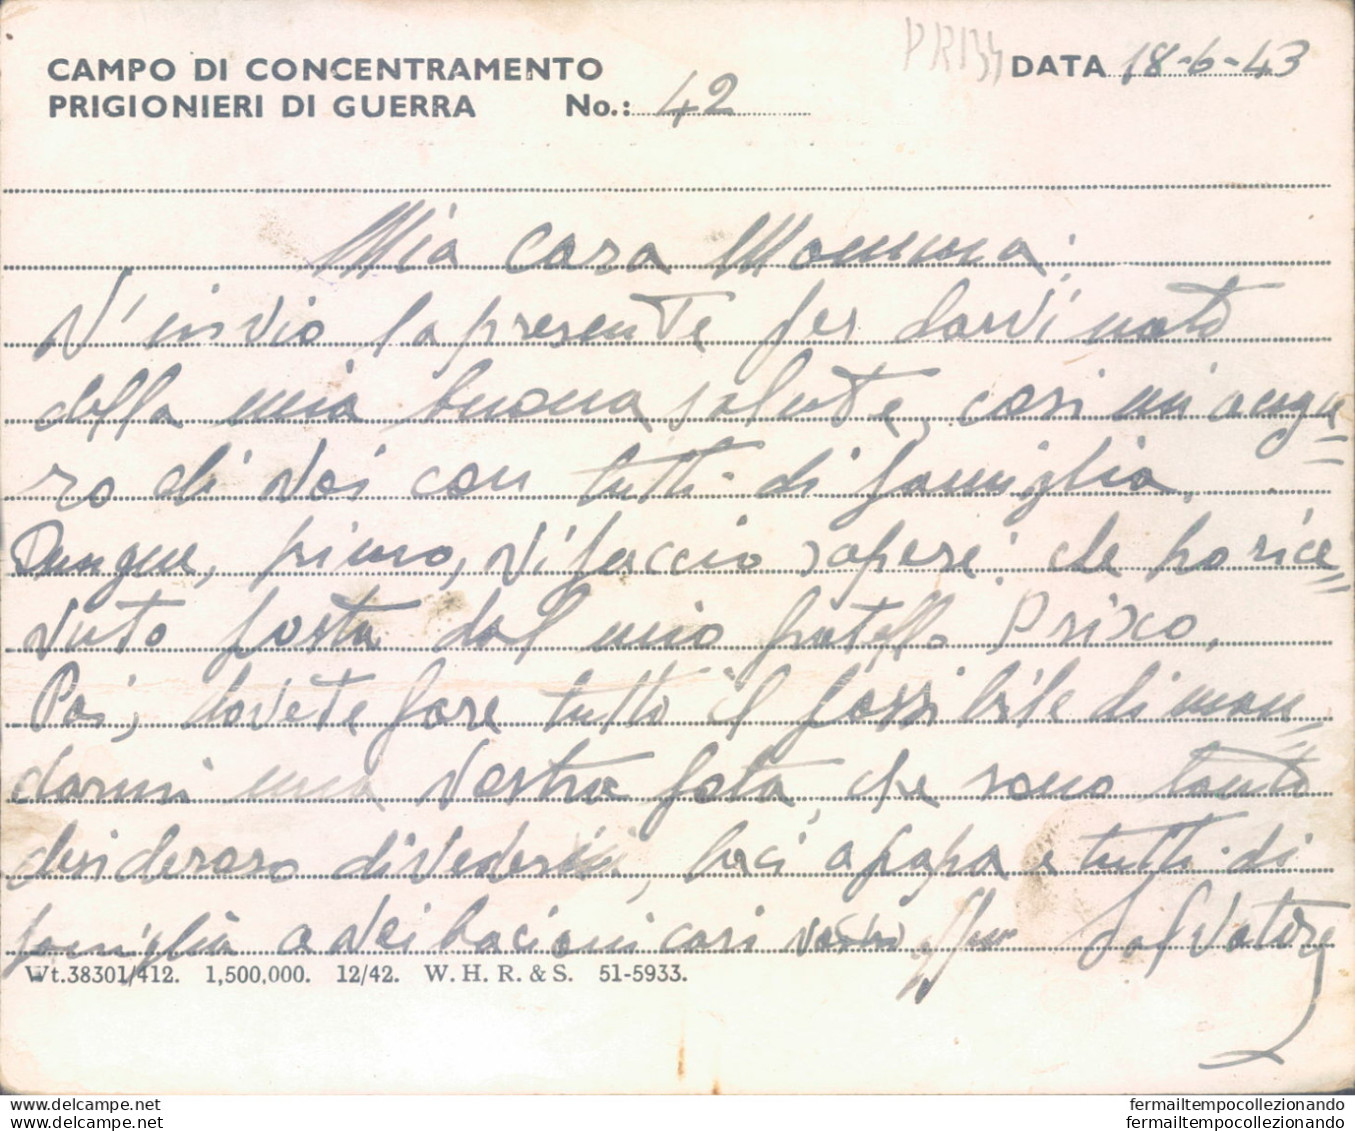 PR134
CAMPO DI CONCENTRAMENTO DATA 18-6-43
PRIGIONIERI DI GUERRA No.: 42
Mia Cara Mamma:
V'invio la presente per darvi nota
della mia buona salute, così mi augu=
ro di Voi con tutti di famiglia.
Dunque, primo, vi faccio sapere: che ho rice=
vuto posta dal mio fratello Prisco.
Poi, dovete fare tutto il possibile di man=
darmi una vostra foto, che sono tanto
desideraro di vedervi, baci a papa e tutti di
famiglia a dei bacioni cari vostro Salvatore
Wt.38301/412. 1,500,000. 12/42. W. H. R. & S. 51-5933.
www.delcampe.net fermailtempocollezionando
www.delcampe.net fermailtempocollezionando